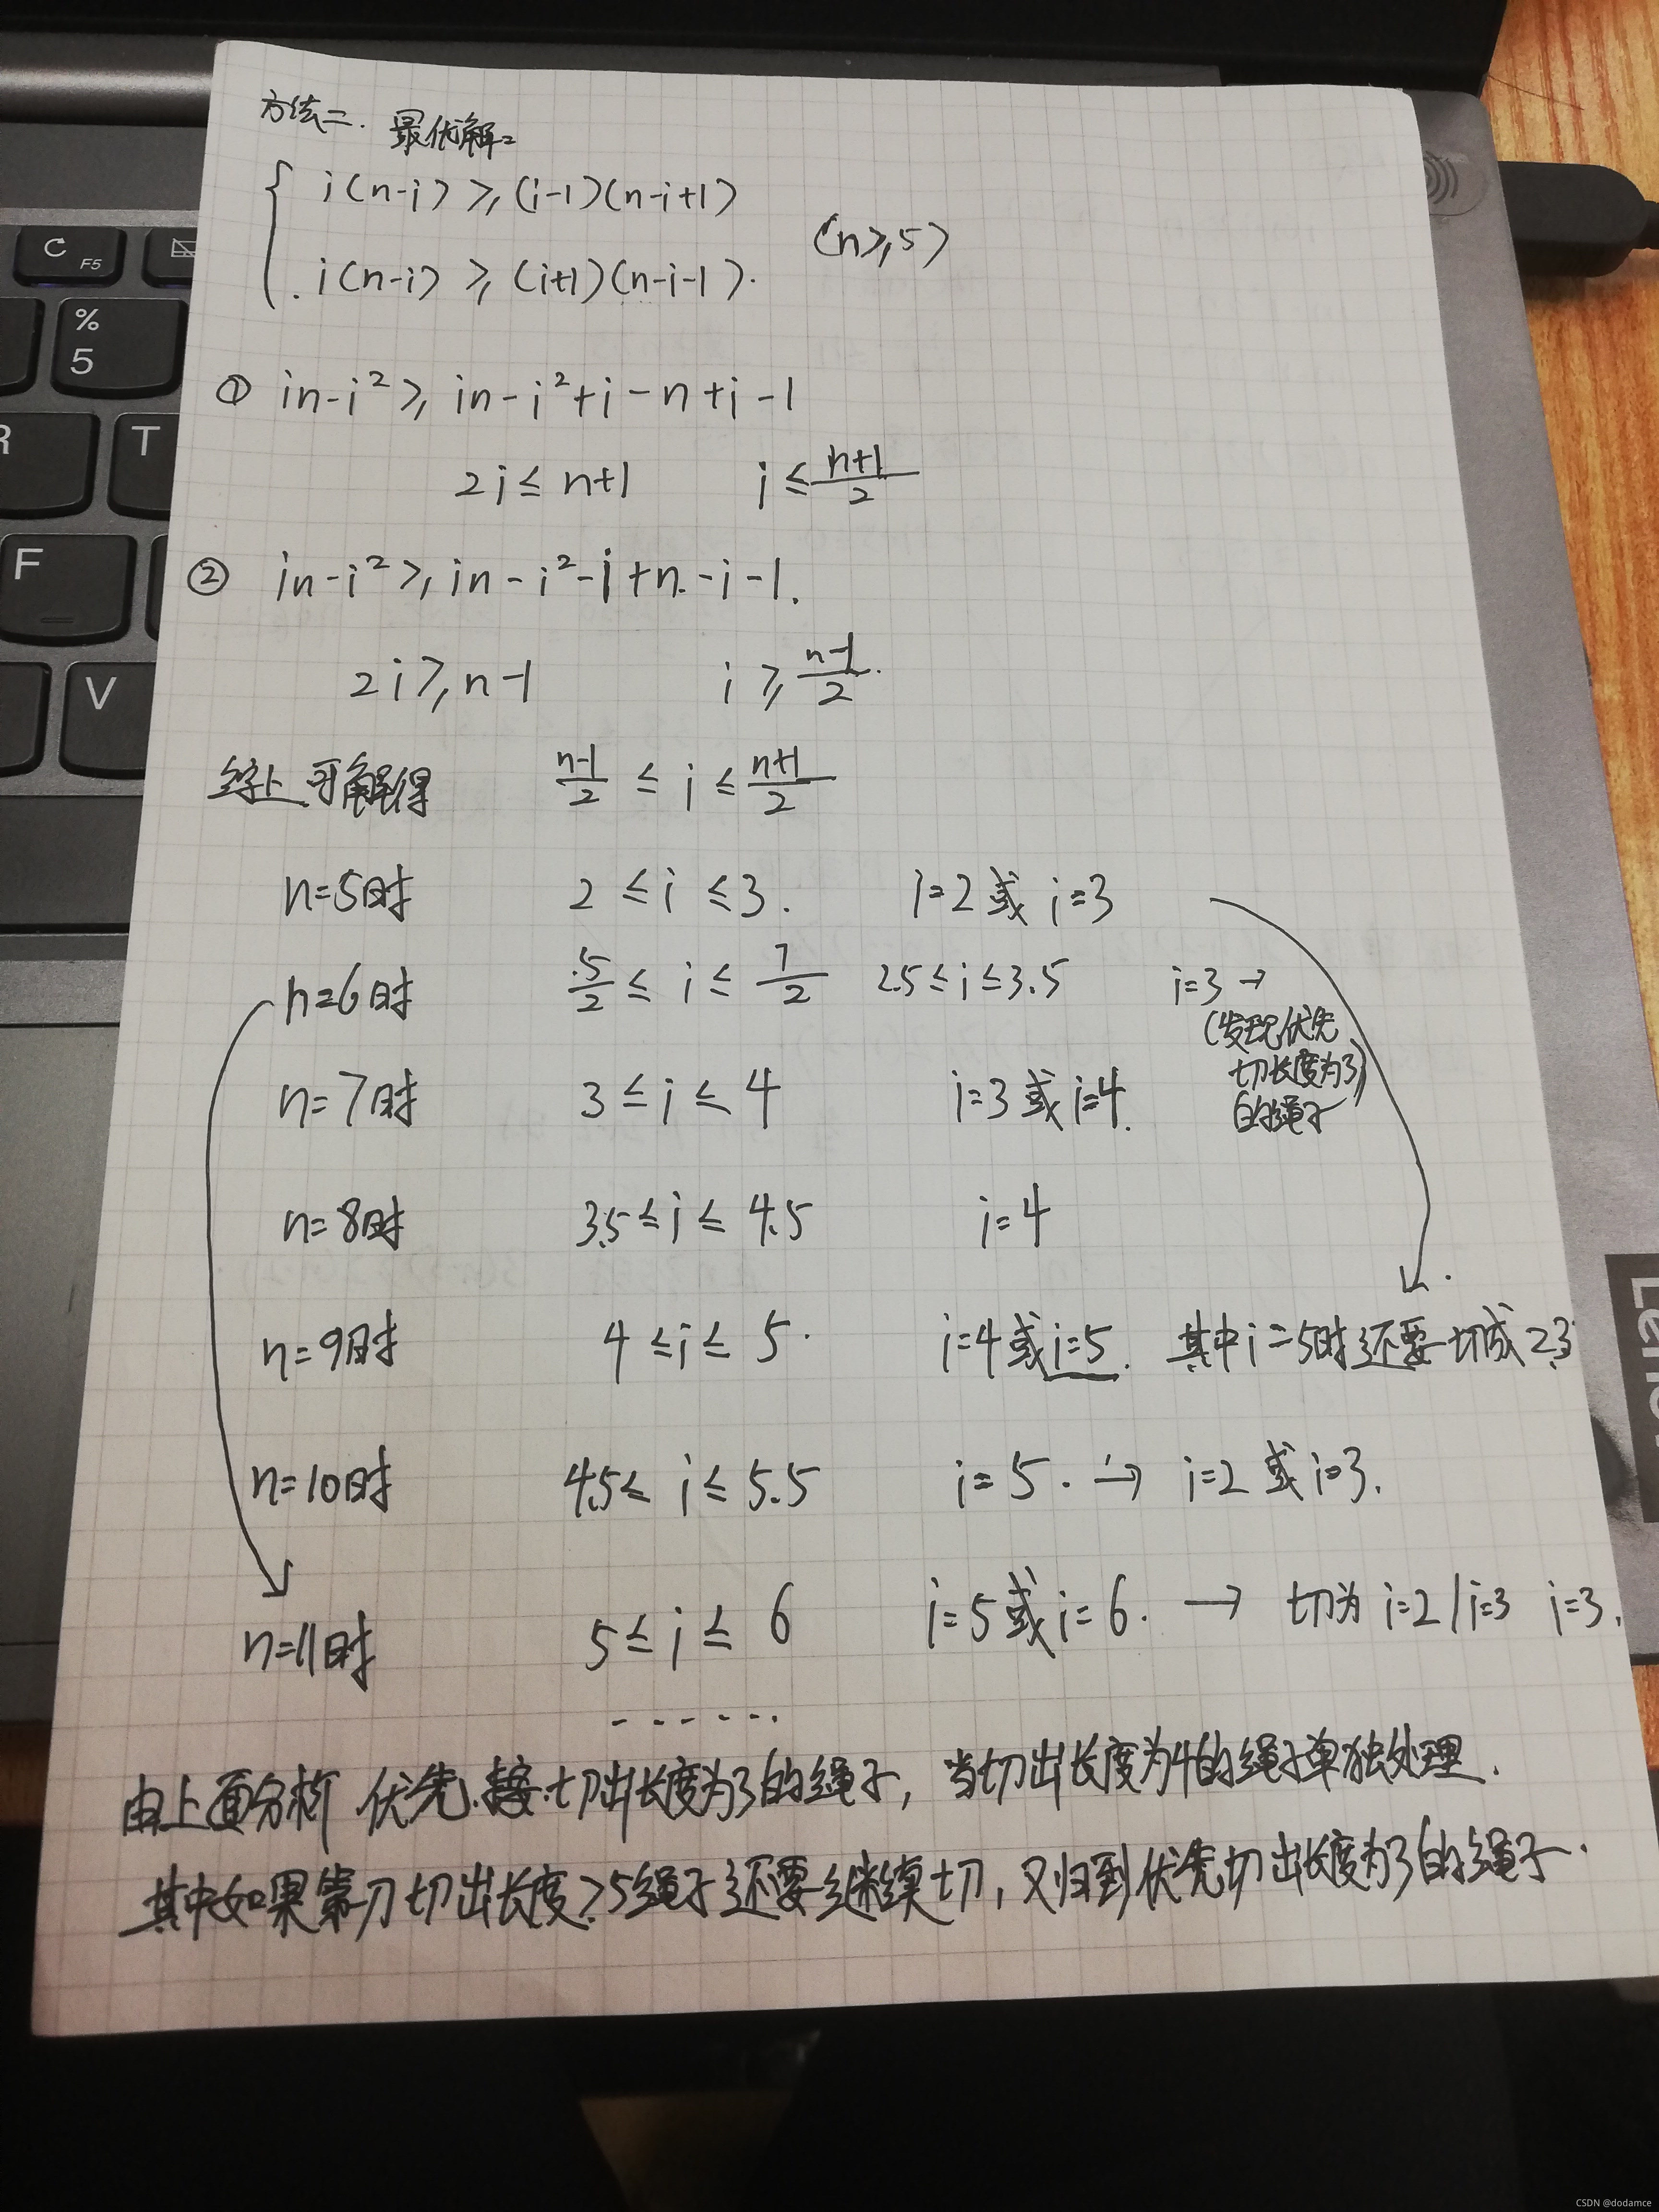 方法二. 最优解:
i(n-i) ≥ (i-1)(n-i+1)
(n≥5)
i(n-i) ≥ (i+1)(n-i-1).
① in-i² ≥ in-i²+i-n+i-1
2i ≤ n+1 i ≤ (n+1)/2
② in-i² ≥ in-i²-i+n-i-1.
2i ≥ n-1 i ≥ (n-1)/2.
综上可解得 (n-1)/2 ≤ i ≤ (n+1)/2
n=5时 2 ≤ i ≤ 3. i=2 或 i=3
n=6时 5/2 ≤ i ≤ 7/2 2.5 ≤ i ≤ 3.5 i=3 →
(发现优先
切长度为3)
的绳子
n=7时 3 ≤ i ≤ 4 i=3 或 i=4.
n=8时 3.5 ≤ i ≤ 4.5 i=4
n=9时 4 ≤ i ≤ 5. i=4 或 i=5. 其中i=5时还要切成2.3
n=10时 4.5 ≤ i ≤ 5.5 i=5. → i=2 或 i=3.
n=11时 5 ≤ i ≤ 6 i=5 或 i=6. → 切为 i=2/i=3 i=3.
......
由上面分析 优先 切出长度为3的绳子, 当切出长度为4的绳子单独处理.
其中如果 刀切出长度≥5绳子还要继续切, 又归到优先切出长度为3的绳子.
C
F5
%
5
R
T
F
V
Leno
CSDN @dodamce